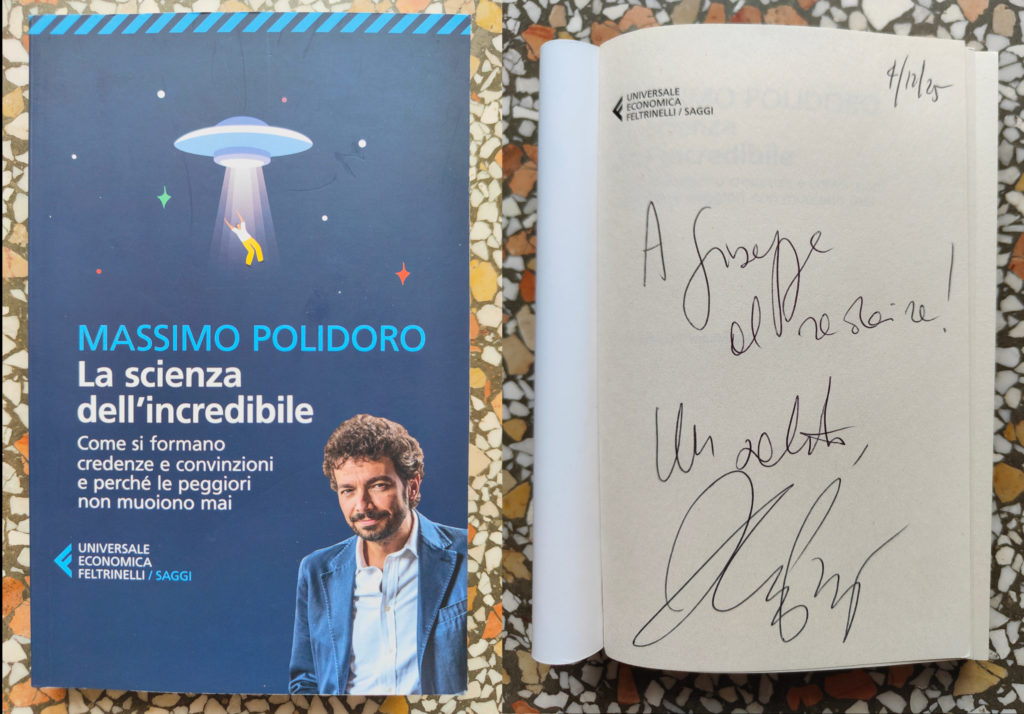 MASSIMO POLIDORO
La scienza
dell'incredibile
Come si formano
credenze e convinzioni
e perché le peggiori
non muoiono mai
UNIVERSALE
ECONOMICA
FELTRINELLI / SAGGI
4/12/25
UNIVERSALE
ECONOMICA
FELTRINELLI / SAGGI
A Giuseppe
Un saluto,